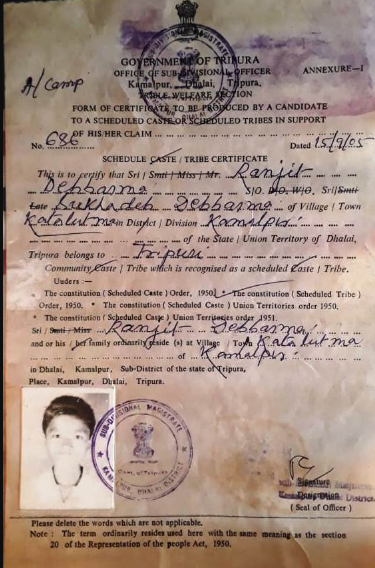 GOVERNMENT OF TRIPURA
OFFICE OF SUB-DIVISIONAL OFFICER
ANNEXURE—I
Kamalpur, Dhalai, Tripura,
A/Camp
WELFARE SECTION
FORM OF CERTIFICATE TO BE PRODUCED BY A CANDIDATE
TO A SCHEDULED CASTE OR SCHEDULED TRIBES IN SUPPORT
OF HIS/HER CLAIM
No. 686 Dated 15/9/05
SCHEDULE CASTE / TRIBE CERTIFICATE
This is to certify that Sri / Smti / Miss / Mr. Ranjit
Debbarma S/O. D/O. W/O, Sri/Smti
Late Sukhadeb Debbarma of Village / Town
Katalutma in District / Division Kamalpur
of the State / Union Territory of Dhalai,
Tripura belongs to Tripuri
Community Caste / Tribe which is recognised as a scheduled Caste / Tribe.
Uuders :—
• The constitution (Scheduled Caste) Order, 1950. • The constitution (Scheduled Tribe)
Order, 1950. • The constitution (Scheduled Caste) Union Territories order 1950.
• The constitution (Scheduled Caste) Union Territories order 1951.
Sri / Smti / Miss Ranjit Debbarma
and or his / her family ordinarily reside (s) at Village / Town Katalutma
of Kamalpur
in Dhalai, Kamalpur, Sub-Division of the state of Tripura,
Place, Kamalpur, Dhalai, Tripura.
SUB-DIVISIONAL MAGISTRATE
Govt. of Tripura
KAMALPUR, DHALAI DISTRICT
Signature
Designation
(Seal of Officer)
Please delete the words which are not applicable.
Note : The term ordinarily resides used here with the same meaning as the section
20 of the Representation of the people Act, 1950.